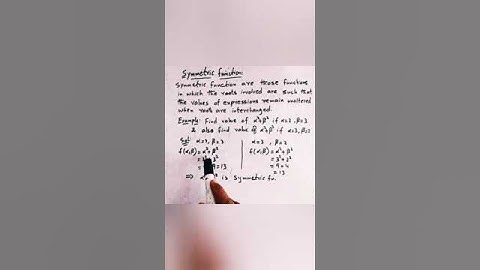 Symmetric function:
Symmetric function are those functions
in which the roots involved are such that
the values of expressions remain unaltered
when roots are interchanged.
Example: Find value of α²+β² if α=2, β=3
& also find value of α²+β² if α=3, β=2
Sol: α=2, β=3
f(α,β) = α²+β²
= 2²+3²
9 = 13
α=3, β=2
f(α,β) = α²+β²
= 3²+2²
= 9+4
= 13
⇒ is symmetric fn.